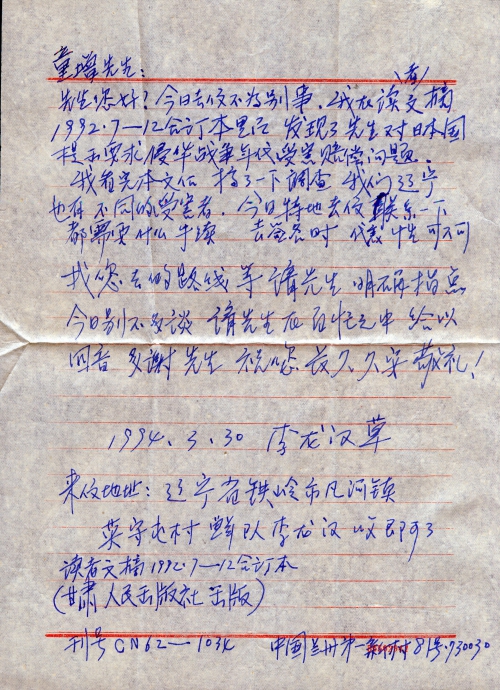 童增先生：
先生您好？今日去信不为别事．我在读(者)文稿
1992.7—12合订本里面 发现了先生对日本国
提出要求侵华战争年代受害赔偿问题．
我看完本文后 搞了一下调查 我们辽宁
也有不同的受害者．今日特地去信联系一下
都需要什么手续 去签名时 代表性可不可
找您去的路线等请先生明确指点
今日别不多谈 请先生在百忙之中给以
回音 多谢先生 祝您
敬礼！
1994.3.30 李龙汉草
来信地址：辽宁省铁岭市凡河镇
英守屯村鲜队李龙汉收即可
读者文稿1992.7—12合订本
(甘肃人民出版社出版)
刊号CN62—103K 中国兰州第一新村81号.730030